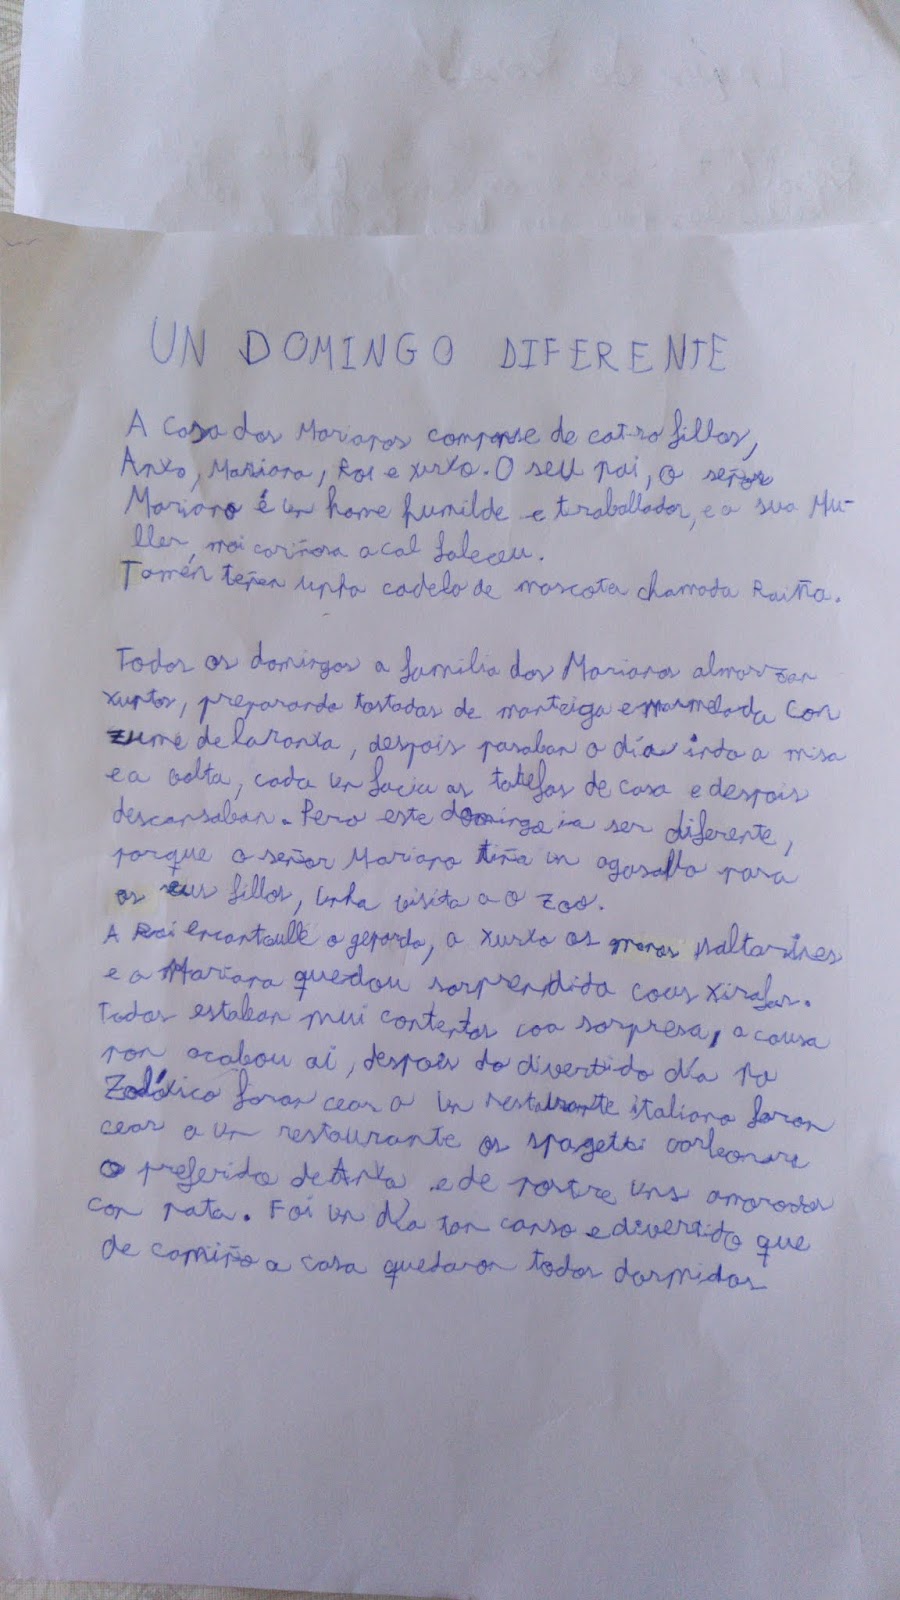 UN DOMINGO DIFERENTE
A casa dos Marianos componse de catro fillos,
Anxo, Mariana, Roi e Xurxo. O seu pai, o señor
Mariano é un home humilde e traballador, e a sua Mu-
ller, moi cariñosa a cal faleceu.
Tamén teñen unha cadela de mascota chamada Raiña.
Todos os domingos a familia dos Marianos almorzan
xuntos, preparando tostadas de manteiga e marmelada con
zume de laranxa, despois pasaban o día indo a misa
e a volta, cada un facia as tarefas de casa e despois
descansaban. Pero este domingo ia ser diferente,
porque o señor Mariano tiña un agasallo para
os seus fillos, unha visita a o zoo.
A Roi encantoulle o gepardo, a Xurxo os monos saltarines
e a Mariana quedou sorprendida coas xirafas.
Todos estaban mui contentos coa sorpresa, a cousa
non acabou ai, despois do divertido día no
Zoolóxico foron cear a un restaurante italiano foron
cear a un restaurante os spagetti carbonara
o preferido de Anxo e de postre uns amorodos
con nata. Foi un día tan canso e divertido que
de camiño a casa quedaron todos dormidos